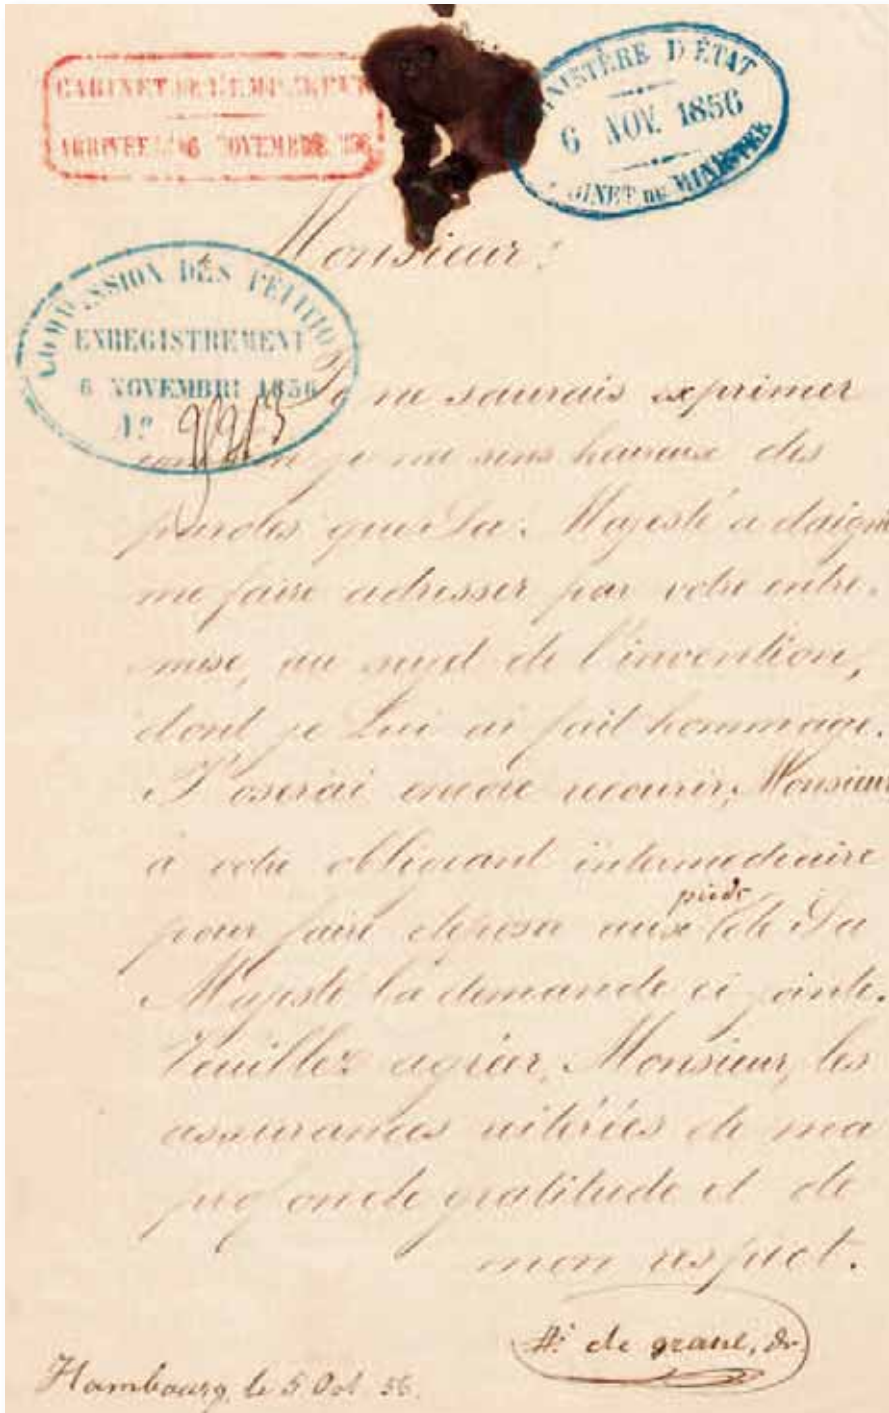 CABINET DE L'EMPEREUR
ARRIVÉE LE 6 NOVEMBRE 1856
MINISTÈRE D'ÉTAT
6 NOV. 1856
CABINET DU MINISTRE
Monsieur:
COMMISSION DES PÉTITIONS
ENREGISTREMENT
6 NOVEMBRE 1856
N°
Je ne saurais exprimer
combien je me sens heureux des
paroles que Sa Majesté a daigné
me faire adresser par votre entre-
mise, au sujet de l'invention,
dont je Lui ai fait hommage.
J'oserai encore recourir, Monsieur
à votre obligeant intermediaire
pour faire deposer aux pieds de Sa
Majesté la demande ci jointe.
Veuillez agréer, Monsieur, les
assurances réitérées de ma
profonde gratitude et de
mon respect.
de
Hambourg, le 5 Oct 56.